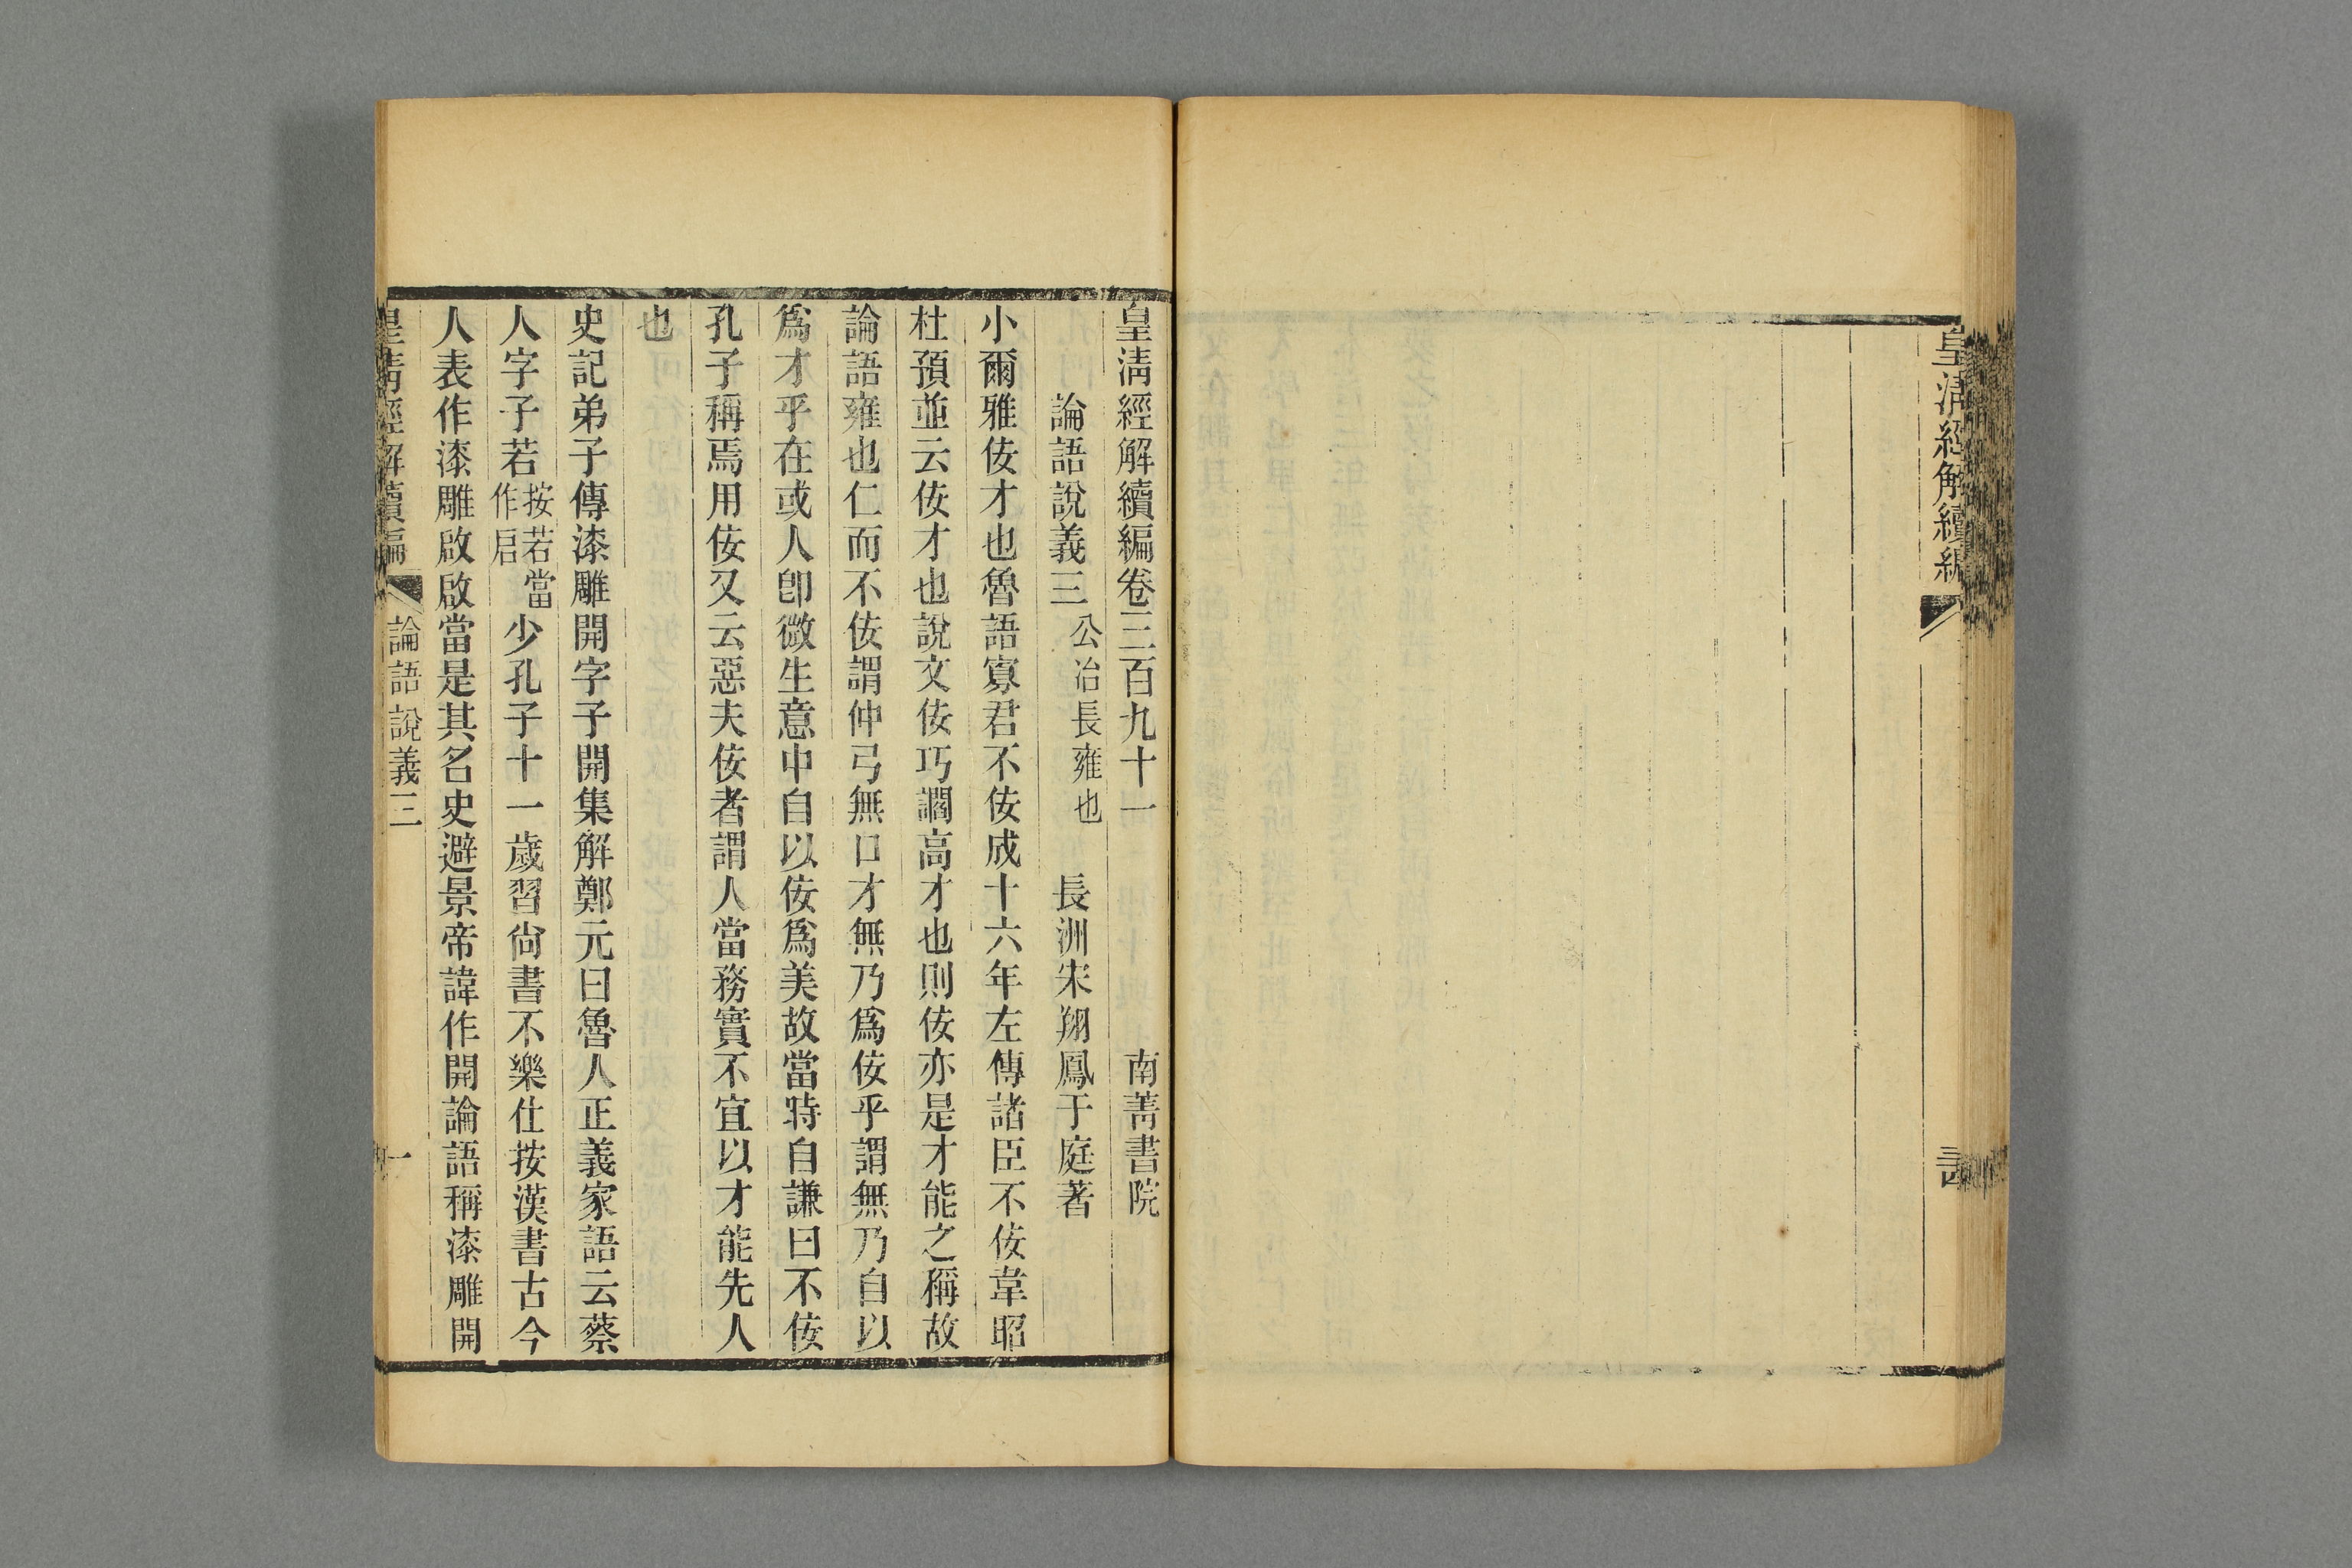 皇清經解續編
皇清經解續編卷三百九十一 南菁書院
論語說義三 公冶長雍也 長洲宋翔鳳于庭著
小爾雅佞才也魯語寡君不佞成十六年左傳諸臣不佞韋昭
杜預並云佞才也說文佞巧讇高才也則佞亦是才能之稱故
論語雍也仁而不佞謂仲弓無口才無乃爲佞乎謂無乃自以
爲才乎在或人卽微生意中自以佞爲美故當時自謙曰不佞
孔子稱焉用佞又云惡夫佞者謂人當務實不宜以才能先人
也
史記弟子傳漆雕開字子開集解鄭元曰魯人正義家語云蔡
人字子若按若當作启少孔子十一歲習尙書不樂仕按漢書古今
人表作漆雕啟啟當是其名史避景帝諱作開論語稱漆雕開
皇清經解續編 論語說義三 一